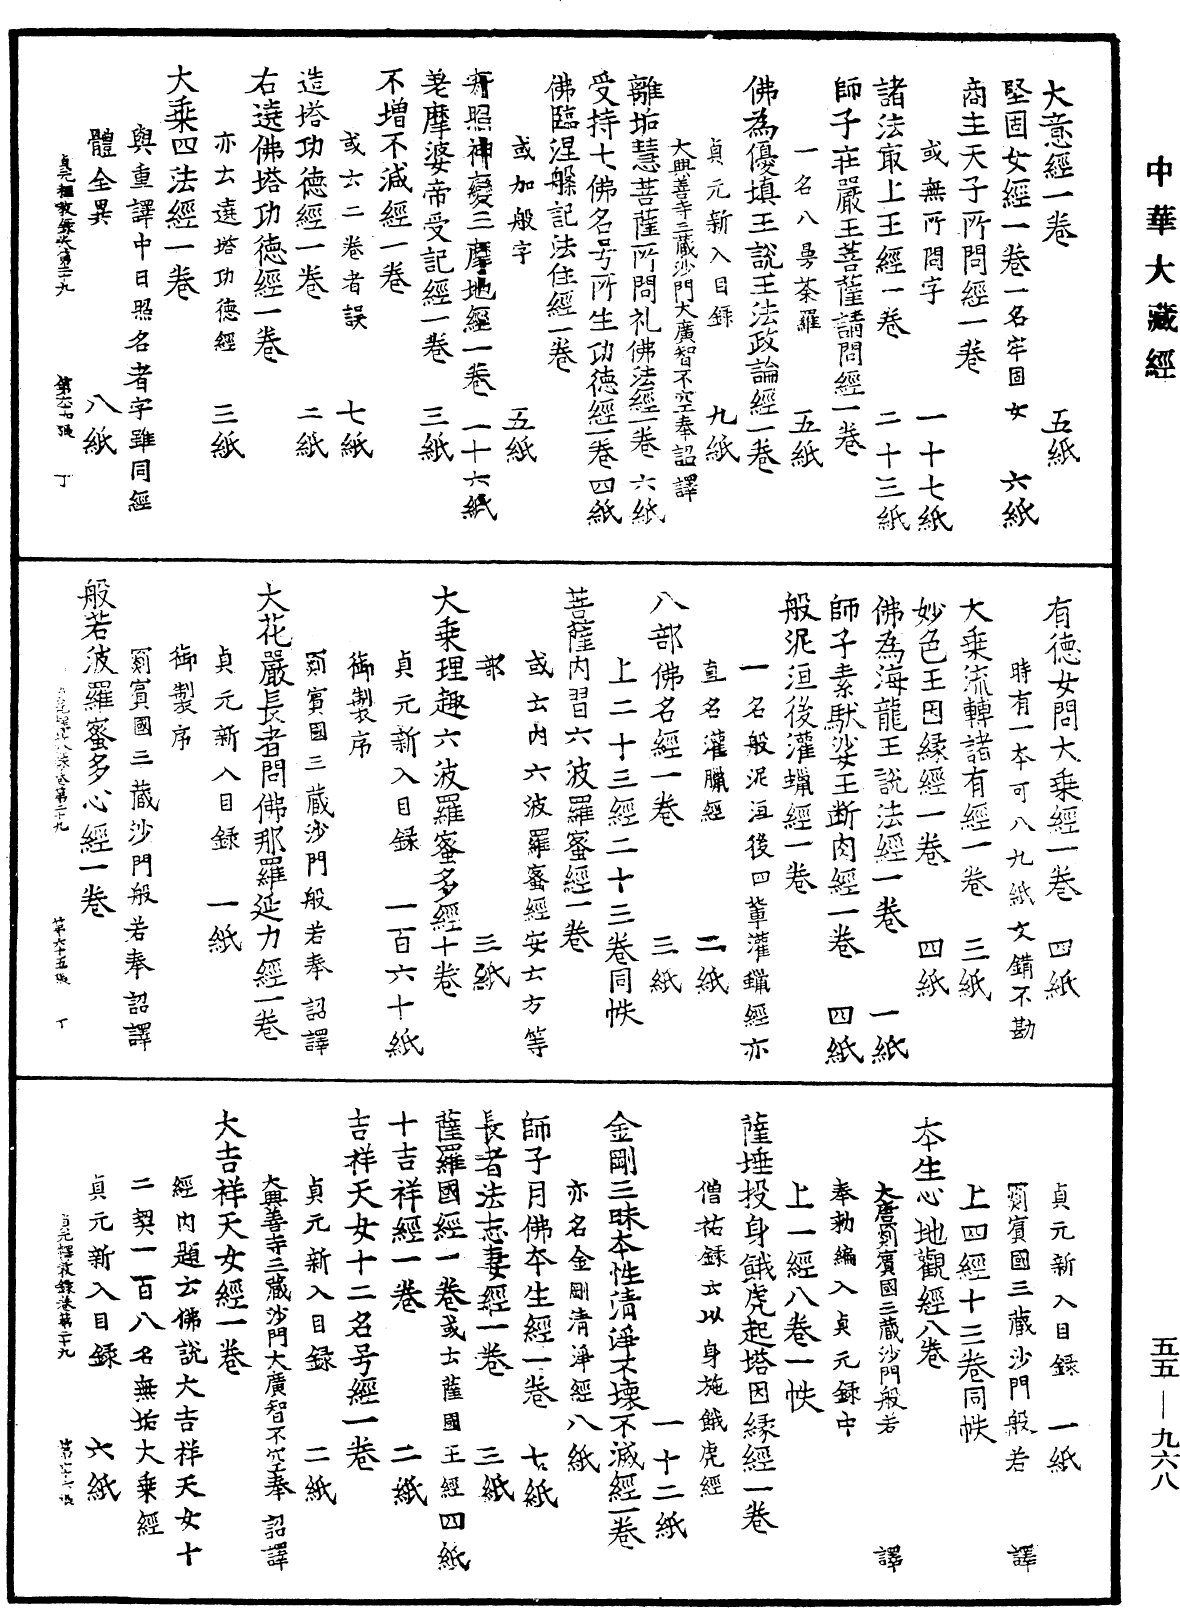 中華大藏經
大意經一卷　五紙
堅固女經一卷一名牢固女　六紙
商主天子所問經一卷
或無所問字　一十七紙
諸法最上王經一卷　二十三紙
師子莊嚴王菩薩請問經一卷
一名八曼荼羅　五紙
佛為優填王說王法政論經一卷
貞元新入目録　九紙
大興善寺三藏沙門大廣智不空奉詔譯
離垢慧菩薩所問礼佛法經一卷　六紙
受持七佛名号所生功德經一卷　四紙
佛臨涅槃記法住經一卷
或加般字　五紙
寂照神變三摩地經一卷　一十六紙
差摩婆帝受記經一卷　三紙
不增不減經一卷
或云二卷者誤　七紙
造塔功德經一卷　二紙
右遶佛塔功德經一卷
亦云遶塔功德經　三紙
大乘四法經一卷
與重譯中日照名者字雖同經
體全異　八紙
貞元釋教錄卷第二十九　第六十四張　丁
有德女問大乘經一卷　四紙
時有一本可八九紙文錯不勘
大乘流轉諸有經一卷　三紙
妙色王因緣經一卷　四紙
佛為海龍王說法經一卷　一紙
師子素馱娑王断肉經一卷　四紙
般泥洹後灌蠟經一卷
一名般泥洹後四輩灌蠟經亦
直名灌臘經　二紙
八部佛名經一卷　三紙
上二十三經二十三卷同帙
菩薩内習六波羅蜜經一卷
或云内六波羅蜜經安云方等
部　三紙
大乘理趣六波羅蜜多經十卷
貞元新入目録　一百六十紙
御製序
罽賓國三藏沙門般若奉詔譯
大花嚴長者問佛那羅延力經一卷
貞元新入目録　一紙
御製序
罽賓國三藏沙門般若奉詔譯
般若波羅蜜多心經一卷
貞元釋教錄卷第二十九　第六十五張　丁
貞元新入目録　一紙
罽賓國三藏沙門般若　譯
上四經十三卷同帙
本生心地觀經八卷
大唐罽賓國三藏沙門般若　譯
奉勅編入貞元録中
上一經八卷一帙
薩埵投身餓虎起塔因緣經一卷
僧祐録云以身施餓虎經
一十二紙
金剛三昧本性清淨不壞不滅經一卷
亦名金剛清淨經　八紙
師子月佛本生經一卷　七紙
長者法志妻經一卷　三紙
薩羅國經一卷或云薩國王經　四紙
十吉祥經一卷　二紙
吉祥天女十二名号經一卷
貞元新入目録　二紙
大興善寺三藏沙門大廣智不空奉詔譯
大吉祥天女經一卷
經内題云佛說大吉祥天女十
二契一百八名無垢大乘經
貞元新入目録　六紙
貞元釋教錄卷第二十九
五五—九六八